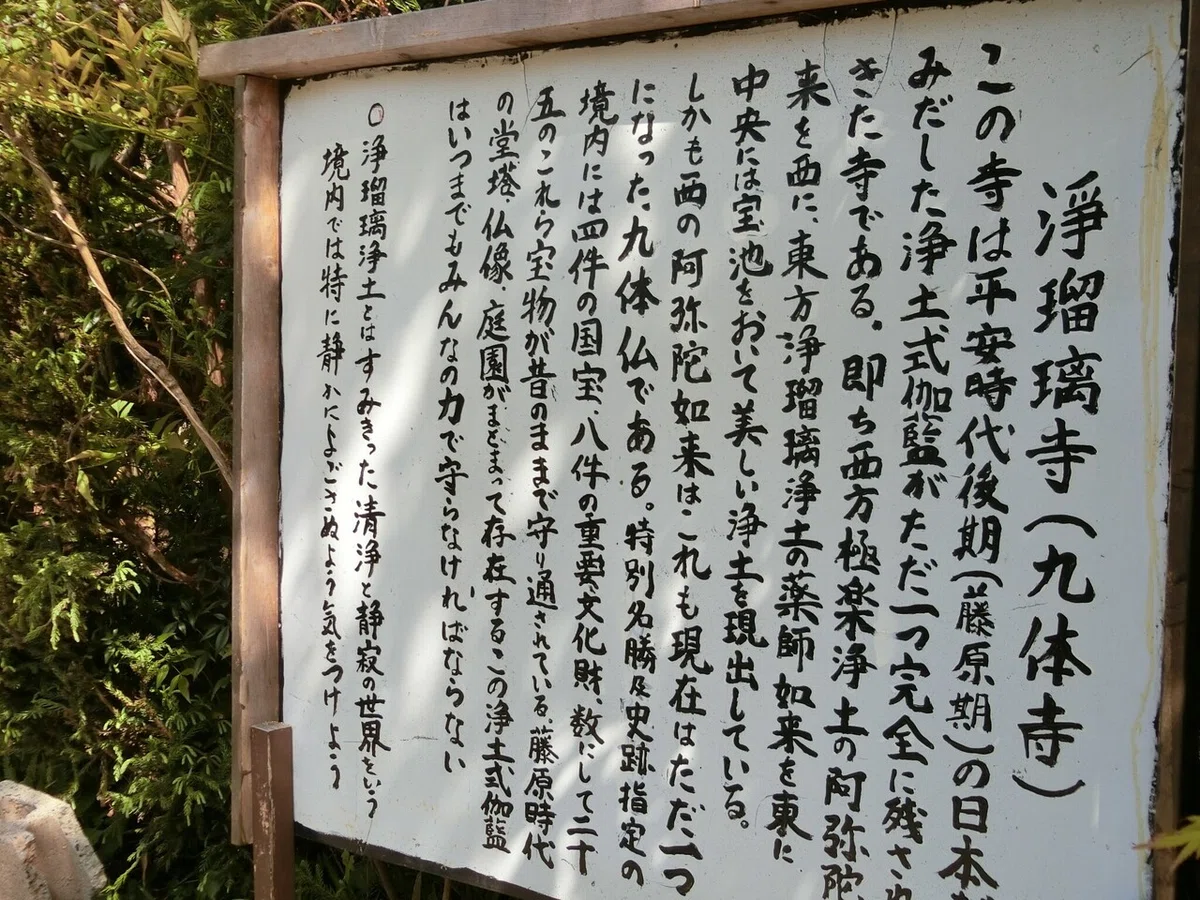 浄瑠璃寺（九体寺）
この寺は平安時代後期（藤原期）の日本が
みだした浄土式伽藍がただ一つ完全に残され
きた寺である。即ち西方極楽浄土の阿弥陀
来を西に、東方浄瑠璃浄土の薬師如来を東に
中央には宝池をおいて美しい浄土を現出している。
しかも西の阿弥陀如来はこれも現在はただ一つ
になった九体仏である。特別名勝及史跡指定の
境内には四件の国宝、八件の重要文化財、数にして二十
五のこれら宝物が昔のままで守り通されている。藤原時代
の堂塔、仏像、庭園がまとまって存在するこの浄土式伽藍
はいつまでもみんなの力で守らなければならない
○浄瑠璃浄土とはすみきった清浄と静寂の世界をいう
境内では特に静かによごさぬよう気をつけよう